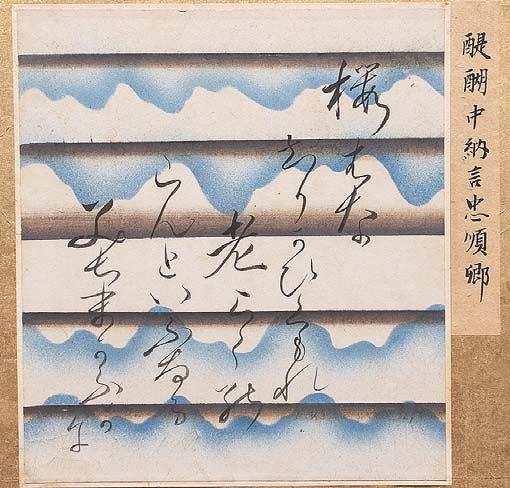 醍醐中納言忠順卿
桜はな
ちりかひくもれ
老らくの
こんといふなる
みちまかふかに